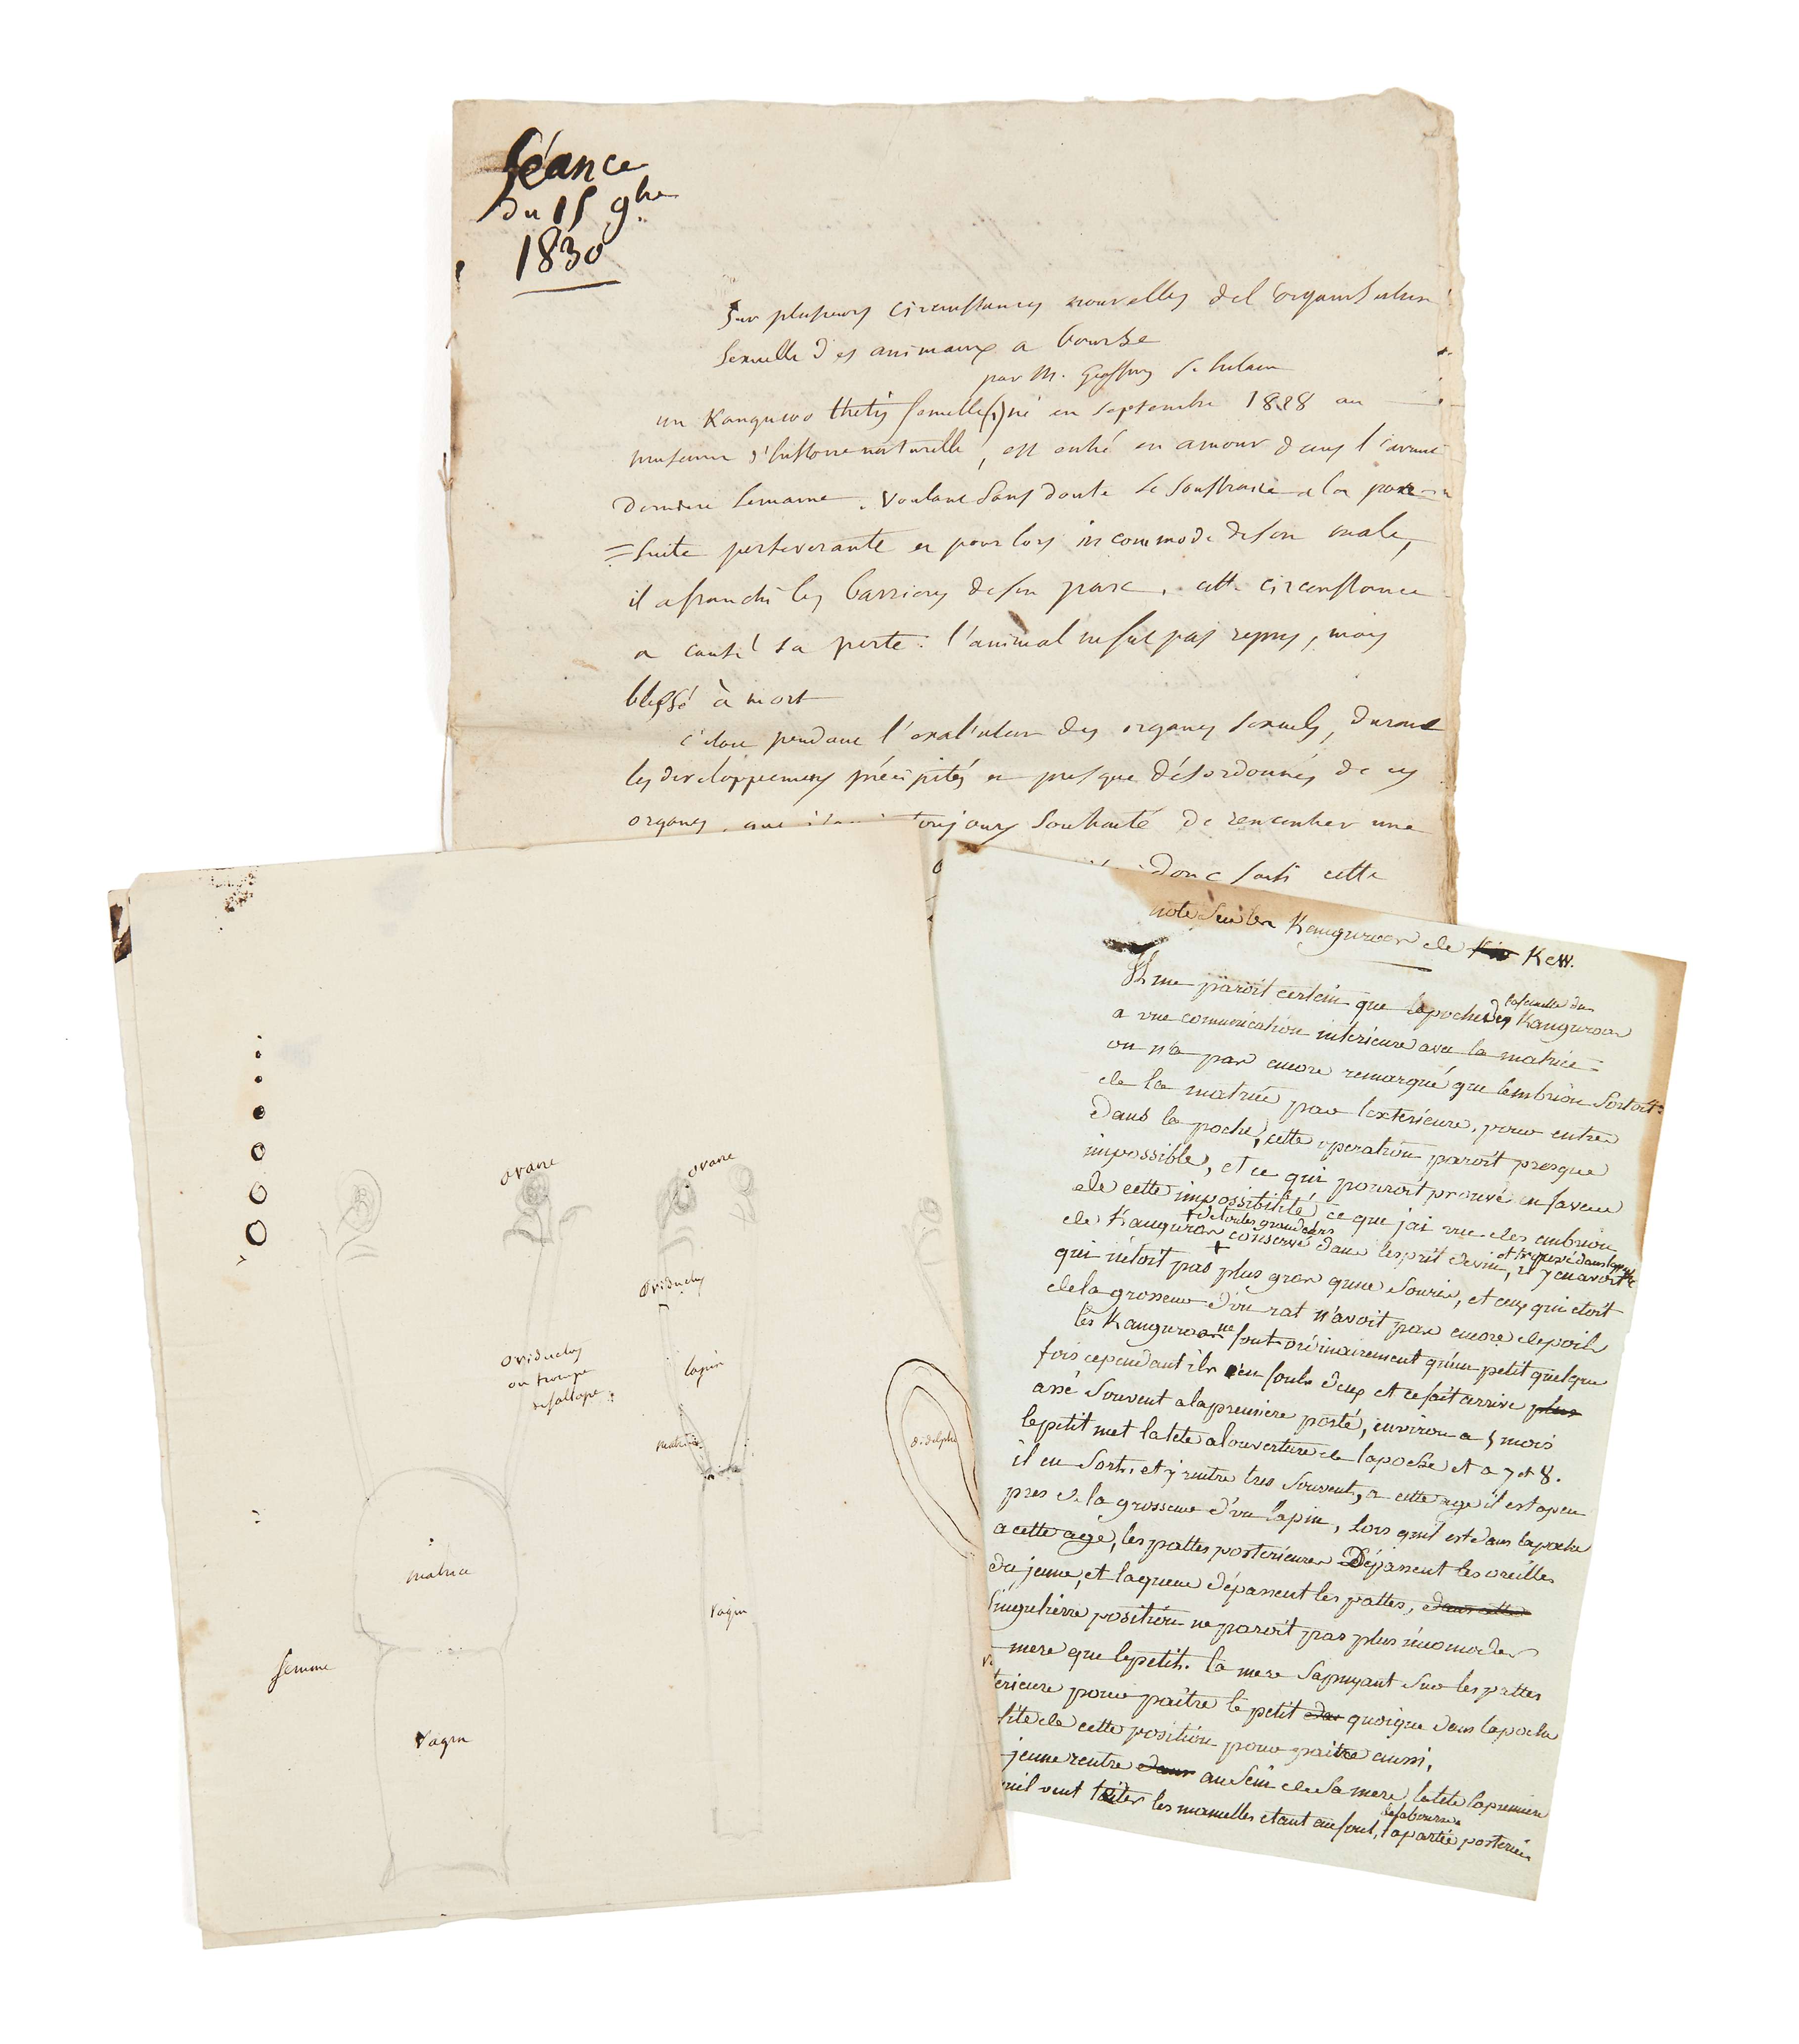 Séance
du 15 9bre
1830
Sur plusieurs circonstances nouvelles de l'organisation
sexuelle des animaux a bourse
par M. Geoffroy St hilaire
un Kanguroo thetis femelle (1) né en septembre 1828 au
museum d'histoire naturelle, est entré en amour dans l'avant
derniere semaine. Voulant sans doute se soustraire a la pour
=suite perseverante et pour lors incommode de son male,
il a franchi les barrieres de son parc. cette circonstance
a causé sa perte : l'animal ne fut pas repris, mais
blessé à mort
c'étoit pendant l'exaltation des organes sexuels, durant
les developpemens précipités et presque désordonnés de ces
organes, que toujours souhaité de rencontrer une
donc cette
ovaire
ovaire
oviductes
oviductes
ou trompe
de fallope
lapin
matrice
didelphe
matrice
vagin
femme
vagin
note sur les Kanguroos de Kew.
Il me paroit certain que la poche des la femelle du Kanguroos
a une comunication interieure avec la matrice =
on n'a pas encore remarqué que l'embrion sortoit
de la matrice par l'exterieure, pour entrer
dans la poche, cette operation paroit presque
impossible, et ce qui pouroit prouvé en faveur
de cette impossibilité, ce que jai vue des embrion
de Kanguroo + de toutes grandeurs conservé dans lesprit devin, et trouvé dans la poche il y en avoit
qui n'étoit pas plus gros qune souris, et ceux qui etoit
de la grosseur d'un rat n'avoit pas encore de poils
les Kanguroos ne font ordinairement qu'un petit quelque
fois cependant ils en font deux et ce fait arrive plus
assé souvent a la premiere porté, environ a 5 mois
le petit met la tete a louverture de la poche et a 7 et 8.
il en sort, et y rentre tres souvent, a cette age il est apeu
pres de la grosseur d'un lapin, lors quil est dans la poche
a cette age, les pattes posterieures Dépassent les oreilles
du jeune, et la queue dépassent les pattes, dans cette
singulierre position ne paroit pas plus incomoder
mere que le petit. la mere sapuyant sur les pattes
terieure pour paitre le petit dan quoique dans la poche
fite de cette position pour paitre aussi,
jeune rentre dans au sein de sa mere, la tete la premiere
quil veut teter les mamelles etant au fond, de la bourse. la partie posterieu